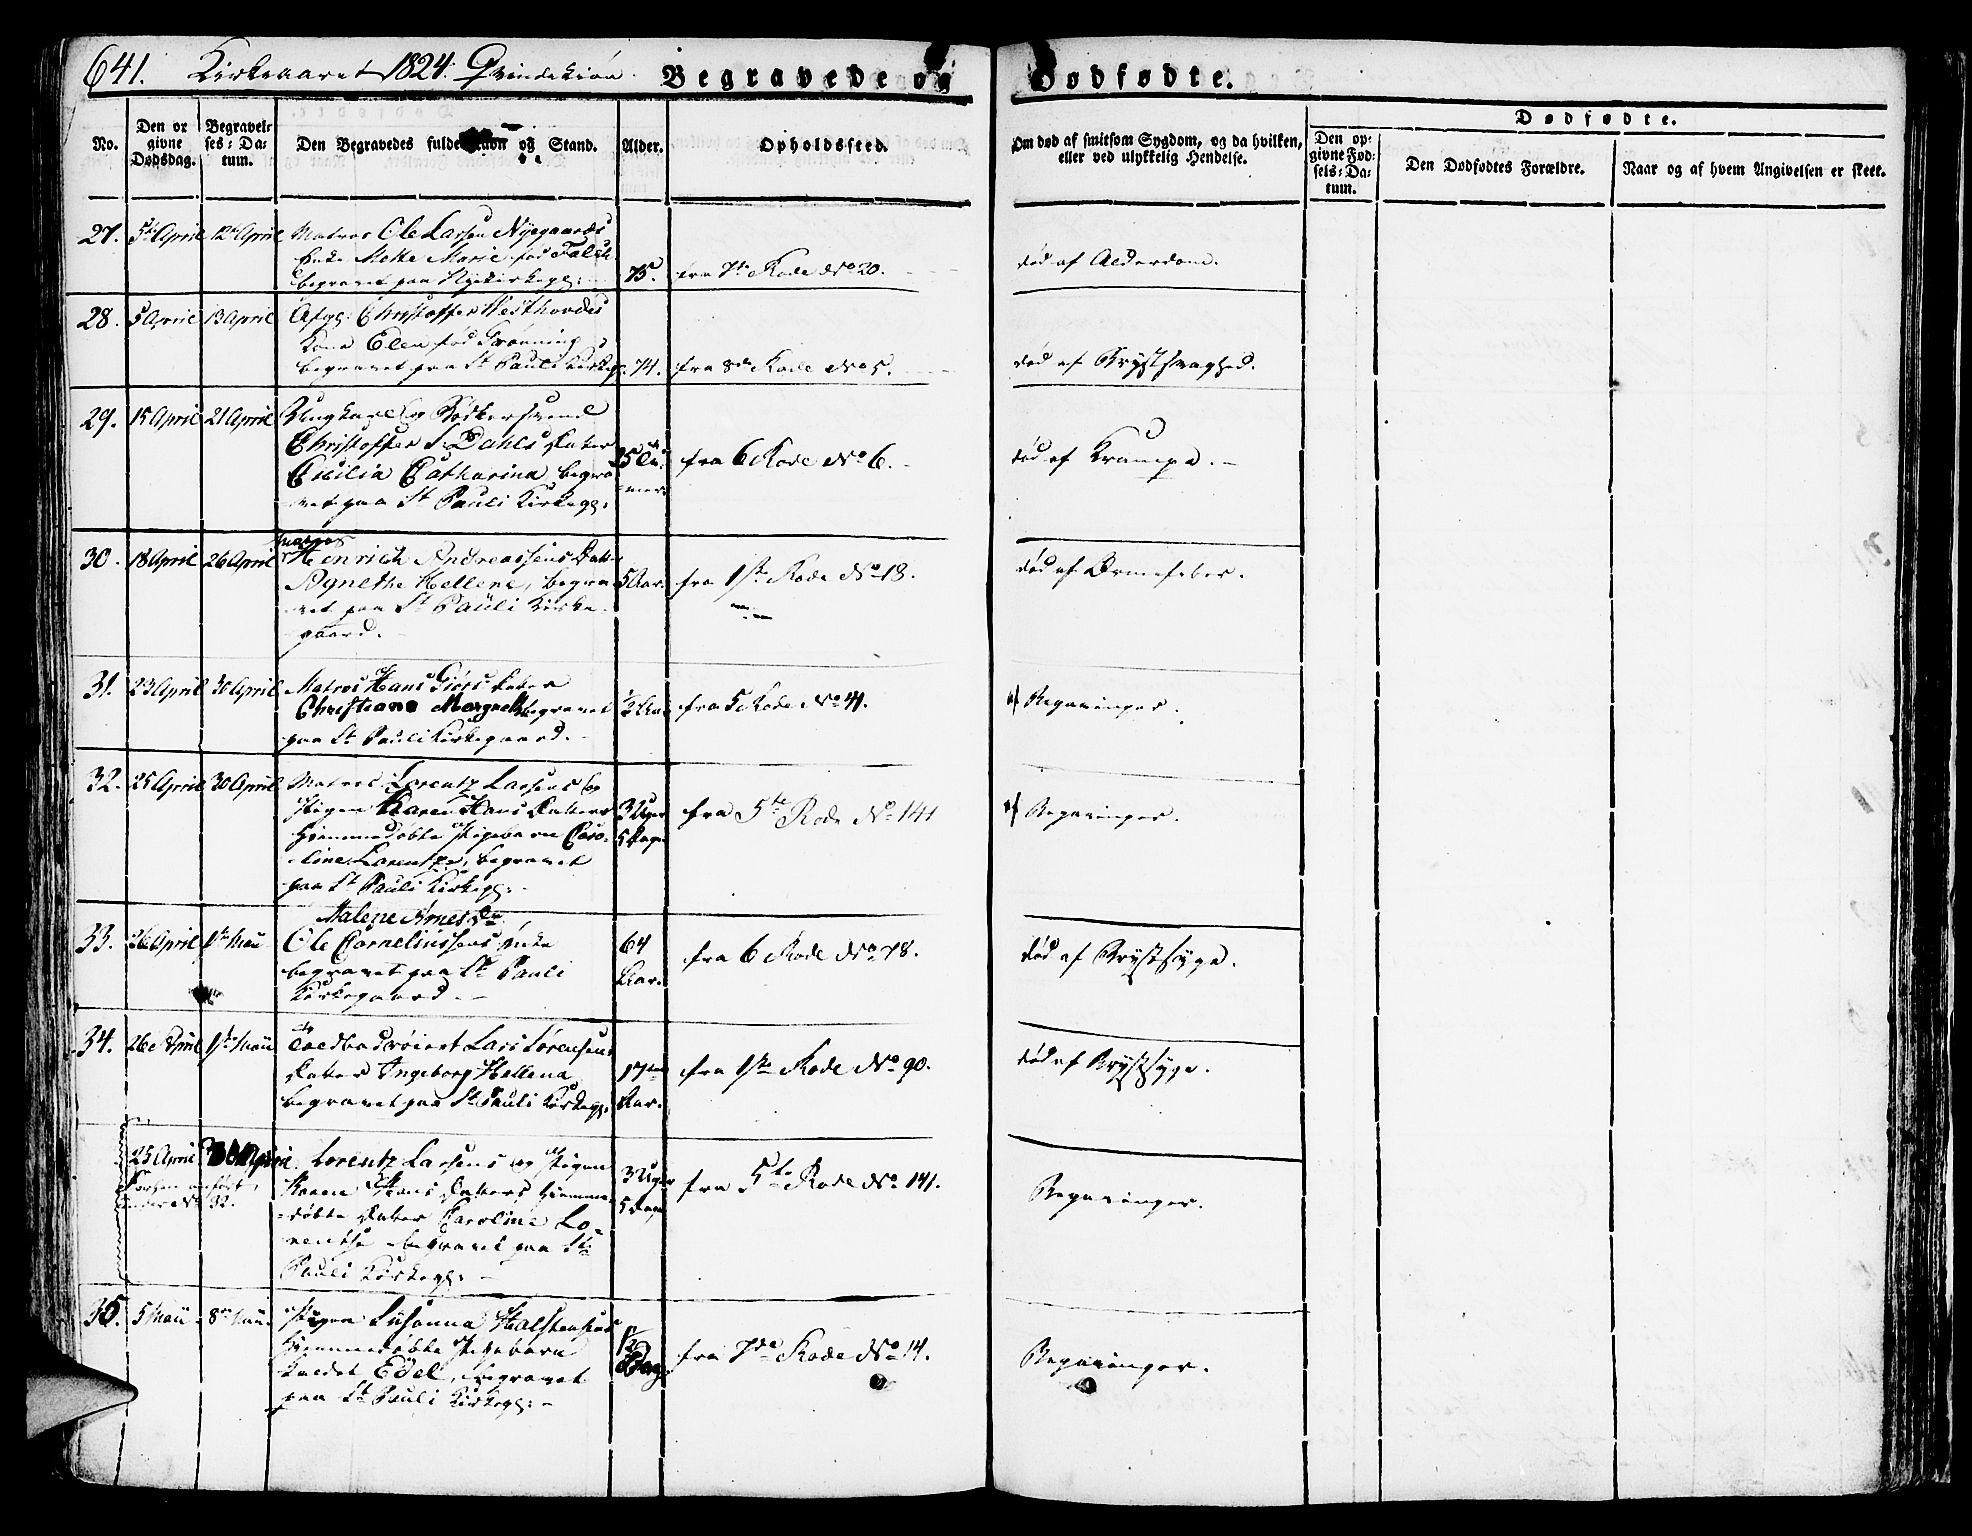 641. Kirkeaaret 1824. Qvindekiøn. Begravede og Dødfødte.
No.
Den opgivne Dødsdag.
Begravelses-Datum.
Den Begravedes fulde Navn og Stand.
Alder.
Opholdssted.
Om død af smitsom Sygdom, og da hvilken, eller ved ulykkelig Hendelse.
Dødfødte.
Den opgivne Fødsels-Datum.
Den Dødfødtes Forældre.
Naar og af hvem Angivelsen er skeet.
27. 5te April 12te April Matros Ole Larsen Nyegaards
Enke Mette Marie fød Falch
begravet paa Nykirkeg: 75. fra 7de Rode No 20. død af Alderdom.
28. 5 April 13 April Afg: Christoffer Westhovds
Kone Elen fød Grønning
begravet paa St Pauli Kirkeg: 74. fra 8de Rode No 5. død af Brystsvaghed.
29. 15 April 21 April Ungkarl og Bødkersvend
Christoffer S. Dahls Datter
Cicilia Catharina, begra-
vet paa St Pauli Kirkeg: fra 6 Rode No 6. død af Krampe.
30. 18 April 26 April Matros
Henrich Andreassens Datter
Agnethe Hellene, begra-
vet paa St Pauli Kirke-
gaard. 5 Aar. fra 1ste Rode No 18. død af Ormefeber.
31. 23 April 30 April Matros Hans Giørs Datter
Christiane Margrethe begravet
paa St Pauli Kirkegaard. 1/2 Aar fra 5 Rode No 41. af Begavinger.
32. 25 April 30 April Matros Lorentz Larsens og
Pigen Karen Hans Datters
hjemmedøbte Pigebarn Caro-
line Lorentze, begravet
paa St Pauli Kirkeg: 3 Uger
5 Dage fra 5te Rode No 141 af Begavinger.
33. 26 April 1ste Maii Malene Arnesdr
Ole Corneliussens Enke
begravet paa St Pauli
Kirkegaard. 64
Aar. fra 6 Rode No 78. død af Brystsyge.
34. 26 April 1ste Maii Lars Sørensens
Datter Ingeborg Hellena
begravet paa St Pauli Kirkeg: 17
Aar. fra 1ste Rode No 90. død af Brystsyge.
25 April 30 April. Lorentz Larsens og Pigen
under No 32. Karen Hans Datters hjemme-
døbte Datter Caroline Lo-
rentse begravet paa St
Pauli Kirkeg: 3 Uger
5 Dage fra 5te Rode No 141. Begavinger.
35. 5 Maii 8de Maii Pigen Susanna Halstensens
hjemmedøbte Pigebarn
kaldet Edel, begravet
paa St Pauli Kirkeg: 1/2
Dag fra 7de Rode No 14. Begavinger.